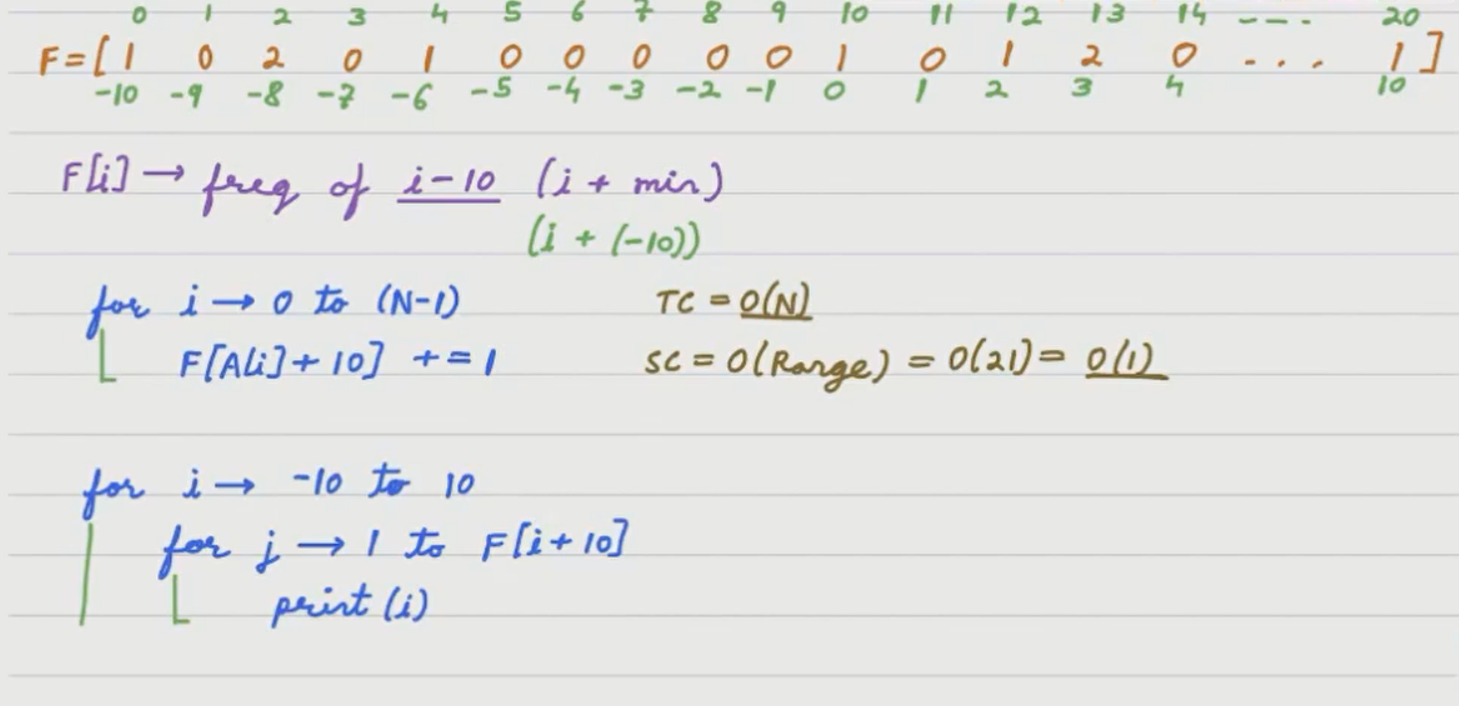 0 1 2 3 4 5 6 7 8 9 10 11 12 13 14 ---. 20
F=[1 0 2 0 1 0 0 0 0 0 1 0 1 2 0 ... 1]
-10 -9 -8 -7 -6 -5 -4 -3 -2 -1 0 1 2 3 4 10
F[i] → freq of i-10 (i + min)
(i + (-10))
for i → 0 to (N-1) TC = O(N)
F[A[i]+10] += 1 SC = O(Range) = O(21) = O(1)
for i → -10 to 10
for j → 1 to F[i+10]
print(i)